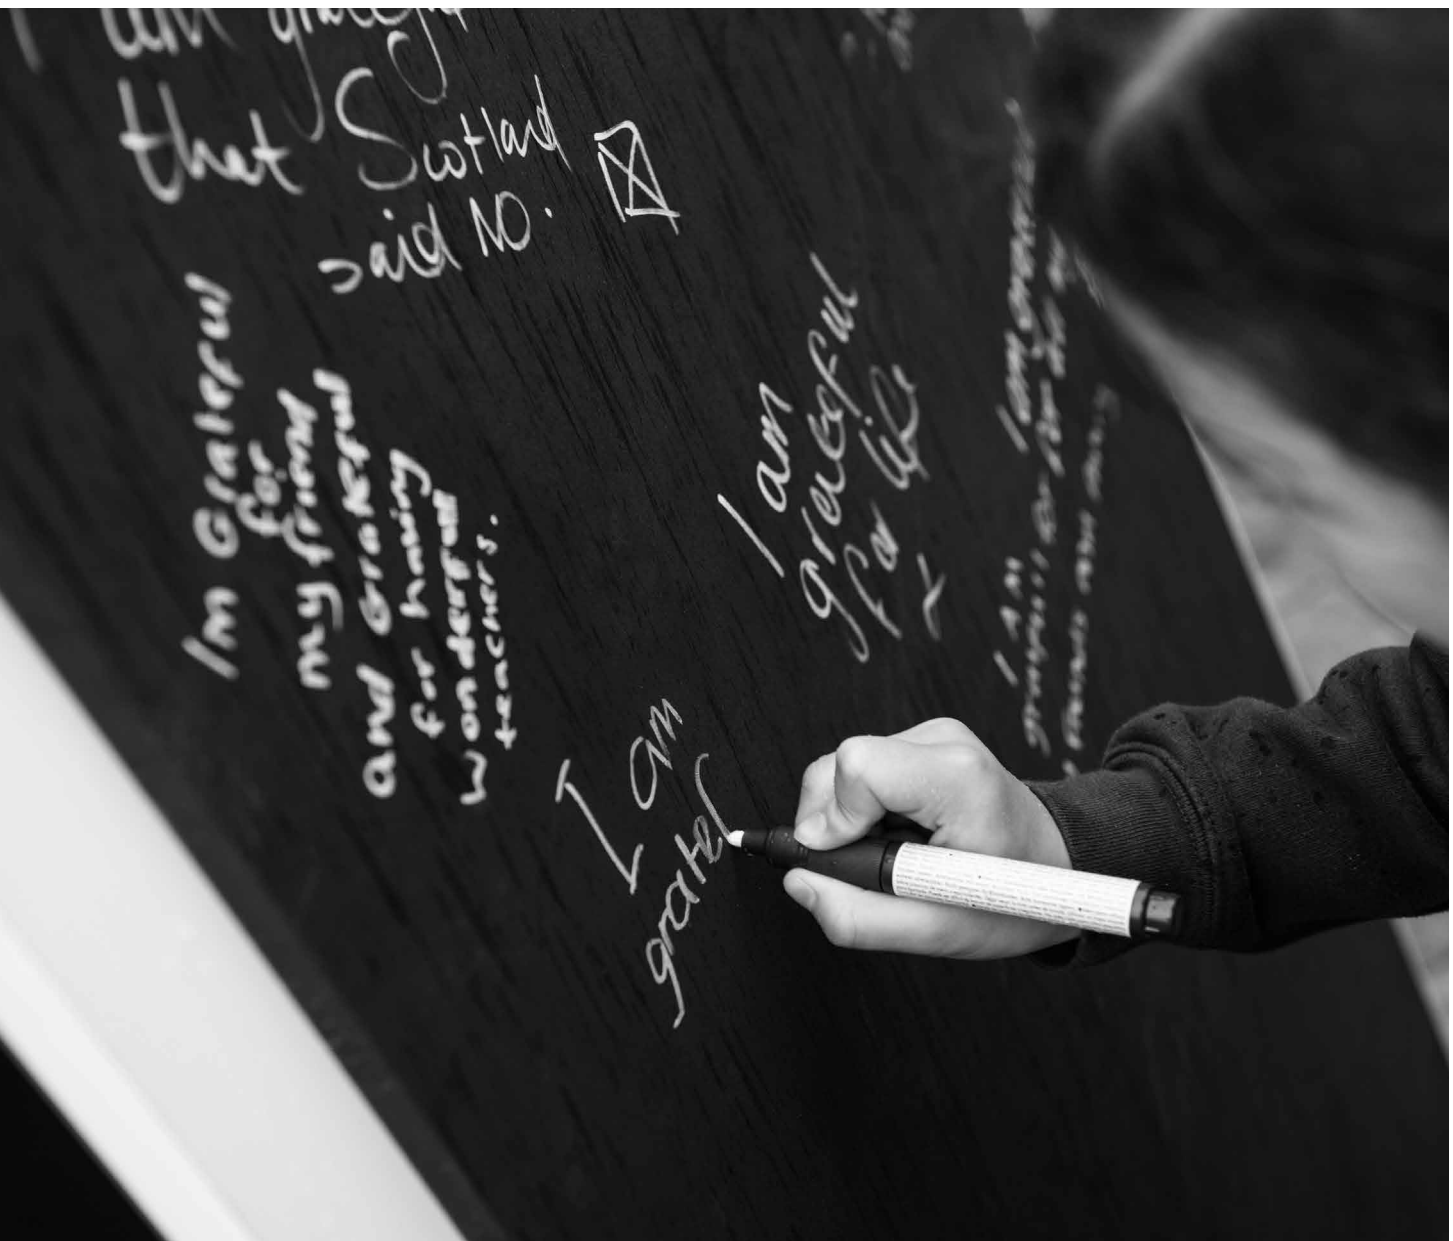 I am grateful
that Scotland
said NO.
Im Grateful
for
my friend
and Grateful
for having
wonderful
teachers.
I am
greatful
for life
x
I am
gratef
I am
I AM